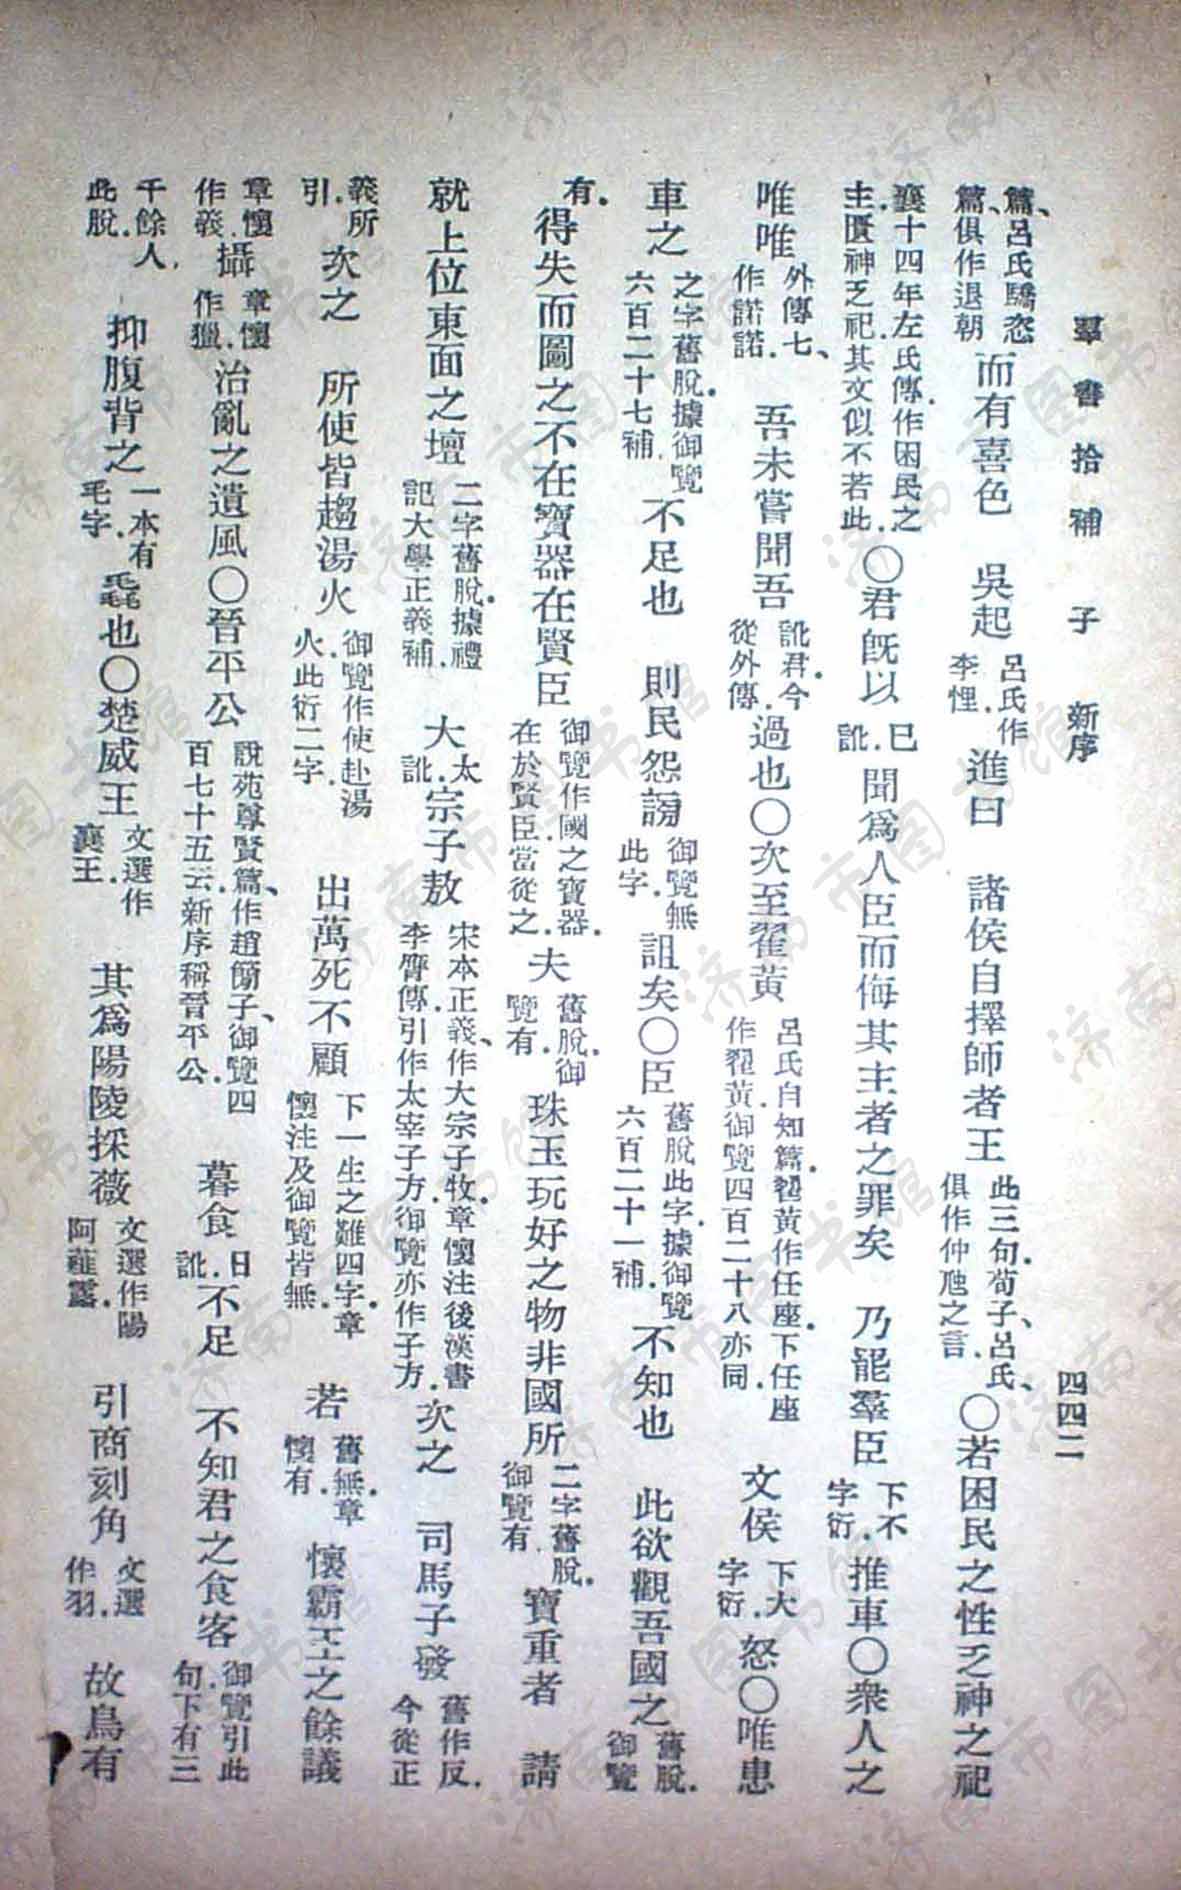 羣書拾補 子 新序 四四二
篇、呂氏驕恣篇、俱作退朝而有喜色 吳起呂氏作李悝.進曰 諸侯自擇師者王此三句荀子、呂氏、俱作仲虺之言.○若困民之性乏神之祀
襄十四年左氏傳.作困民之主.匱神乏祀.其文似不若此.○君旣以巳訛.聞爲人臣而侮其主者之罪矣 乃罷羣臣下不字衍.推車○衆人之
唯唯外傳七、作諾諾.吾未嘗聞吾訛君.今從外傳.過也○次至翟黃呂氏自知篇.翟黃作任座.下任座作翟黃.御覽四百二十八亦同.文侯下大字衍.怒○唯患
車之之字舊脫.據御覽六百二十七補.不足也 則民怨謗御覽無此字.詛矣○臣舊脫此字.據御覽六百二十一補.不知也 此欲觀吾國之舊脫.御覽
有.得失而圖之不在寶器在賢臣御覽作國之寶器.在於賢臣.當從之.夫舊脫.御覽有.珠玉玩好之物非國所二字舊脫.御覽有.寶重者 請
就上位東面之壇二字舊脫.據禮記大學正義補.大太訛.宗子敖宋本正義、作大宗子牧.章懷注後漢書李膺傳.引作太宰子方.御覽亦作子方.次之 司馬子發舊作反.今從正
義所引.次之 所使皆趨湯火御覽作使赴湯火.此衍二字.出萬死不顧下一生之難四字.章懷注及御覽皆無.若舊無.章懷有.懷霸王之餘議
章懷作義.攝章懷作獵.治亂之遺風○晉平公說苑尊賢篇、作趙簡子、御覽四百七十五云.新序稱晉平公.暮食日訛.不足 不知君之食客御覽引此句下有三
千餘人.此脫.抑腹背之一本有毛字.毳也○楚威王文選作襄王.其爲陽陵採薇文選作陽阿薤露.引商刻角文選作羽.故鳥有